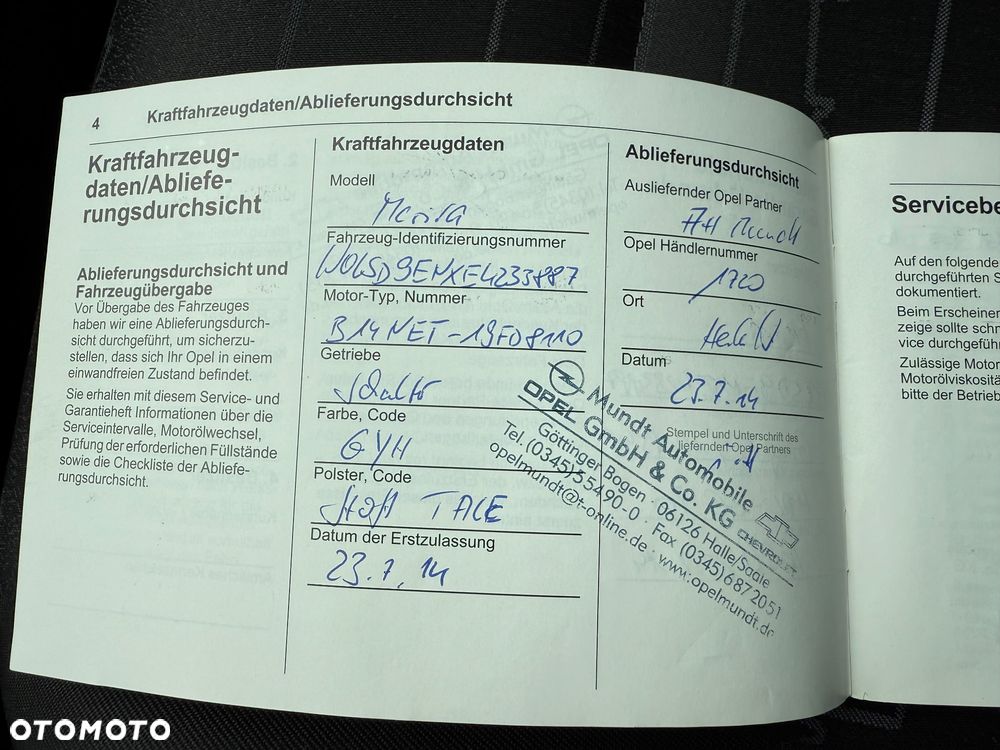 4
Kraftfahrzeugdaten/Ablieferungsdurchsicht
Kraftfahrzeug-
daten/Abliefe-
rungsdurchsicht
Ablieferungsdurchsicht und
Fahrzeugübergabe
Vor Übergabe des Fahrzeuges
haben wir eine Ablieferungsdurch-
sicht durchgeführt, um sicherzu-
stellen, dass sich Ihr Opel in einem
einwandfreien Zustand befindet.
Sie erhalten mit diesem Service- und
Garantieheft Informationen über die
Serviceintervalle, Motorölwechsel,
Prüfung der erforderlichen Füllstände
sowie die Checkliste der Abliefe-
rungsdurchsicht.
Kraftfahrzeugdaten
Modell
Meriva
Fahrzeug-Identifizierungsnummer
W0LSD9ENXE4233887
Motor-Typ, Nummer
B14NET-19FD8110
Getriebe
Schalter
Farbe, Code
GYH
Polster, Code
Stoff TACE
Datum der Erstzulassung
23.7.14
Ablieferungsdurchsicht
Ausliefernder Opel Partner
AH Mundt
Opel Händlernummer
1720
Ort
Datum
23.7.14
Stempel und Unterschrift des
liefernden Opel Partners
Mundt Automobile
OPEL GmbH & Co. KG
CHEVROLET
Göttinger Bogen · 06126 Halle/Saale
Tel. (0345) 55490-0 · Fax (0345) 6872051
opelmundt@t-online.de · www.opelmundt.de
Servicebe
Auf den folgende
durchgeführten S
dokumentiert.
Beim Erscheiner
zeige sollte schn
vice durchgeführ
Zulässige Motor
Motorölviskositä
bitte der Betrieb
OTOMOTO